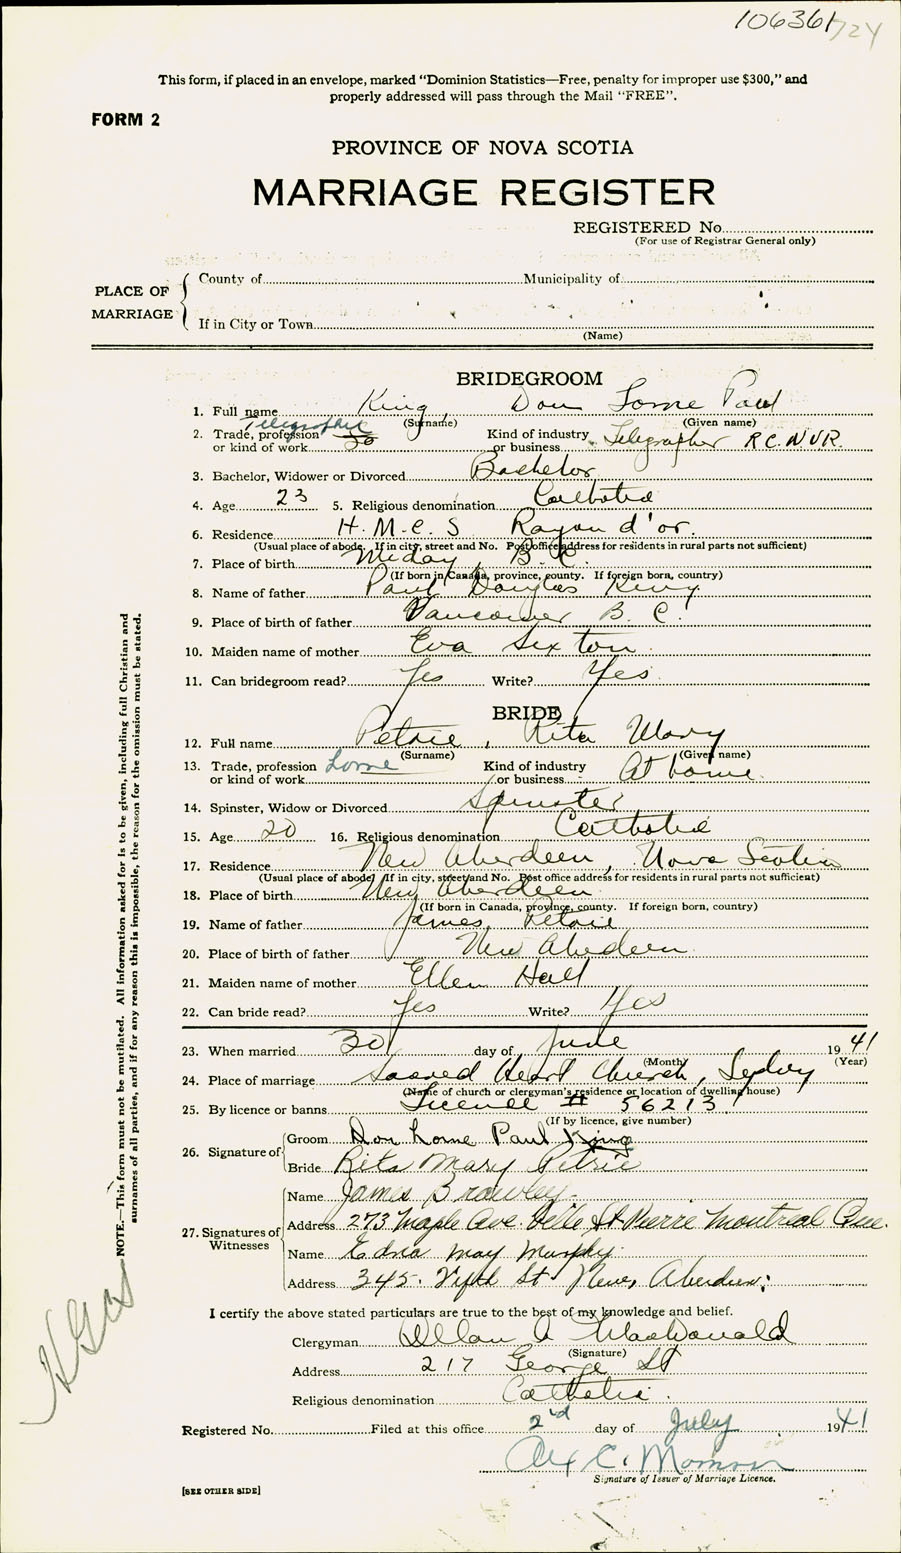 106361 724
This form, if placed in an envelope, marked "Dominion Statistics—Free, penalty for improper use $300," and
properly addressed will pass through the Mail "FREE".
FORM 2
PROVINCE OF NOVA SCOTIA
MARRIAGE REGISTER
REGISTERED No.
(For use of Registrar General only)
PLACE OF MARRIAGE
County of Municipality of
If in City or Town
(Name)
BRIDEGROOM
1. Full name King, Don Lorne Paul
(Surname) (Given name)
Telegraphic
2. Trade, profession or kind of work Kind of industry or business Telegrapher R.C.N.V.R.
3. Bachelor, Widower or Divorced Bachelor
4. Age 23 5. Religious denomination Catholic
6. Residence H.M.C.S Rayon d'or.
(Usual place of abode. If in city, street and No. Post office address for residents in rural parts not sufficient)
7. Place of birth B.C.
(If born in Canada, province, county. If foreign born, country)
8. Name of father Paul Douglas King
9. Place of birth of father Vancouver B.C.
10. Maiden name of mother Eva Sexton
11. Can bridegroom read? Yes Write? Yes
BRIDE
12. Full name Petrie, Rita Mary
(Surname) (Given name)
13. Trade, profession or kind of work home Kind of industry or business At home
14. Spinster, Widow or Divorced Spinster
15. Age 20 16. Religious denomination Catholic
17. Residence New Aberdeen, Nova Scotia
(Usual place of abode. If in city, street and No. Post office address for residents in rural parts not sufficient)
18. Place of birth New Aberdeen
(If born in Canada, province, county. If foreign born, country)
19. Name of father James Petrie
20. Place of birth of father New Aberdeen
21. Maiden name of mother Ellen Hall
22. Can bride read? Yes Write? Yes
23. When married 30 day of June 1941
(Month) (Year)
24. Place of marriage Sacred Heart Church, Sydney
(Name of church or clergyman's residence or location of dwelling house)
25. By licence or banns License # 56213
(If by licence, give number)
26. Signature of
Groom Don Lorne Paul King
Bride Rita Mary Petrie
27. Signatures of Witnesses
Name James Brawley
Address 273 Maple Ave. Ville St Pierre Montreal Que.
Name Edna May Murphy
Address 345 Fifth St New Aberdeen
I certify the above stated particulars are true to the best of my knowledge and belief.
Clergyman A MacDonald
(Signature)
Address 217 George St
Religious denomination Catholic
Registered No. Filed at this office 2nd day of July 1941
Alex C.
Signature of Issuer of Marriage Licence.
[SEE OTHER SIDE]
NOTE.—This form must not be mutilated. All information asked for is to be given, including full Christian and
surnames of all parties, and if for any reason this is impossible, the reason for the omission must be stated.